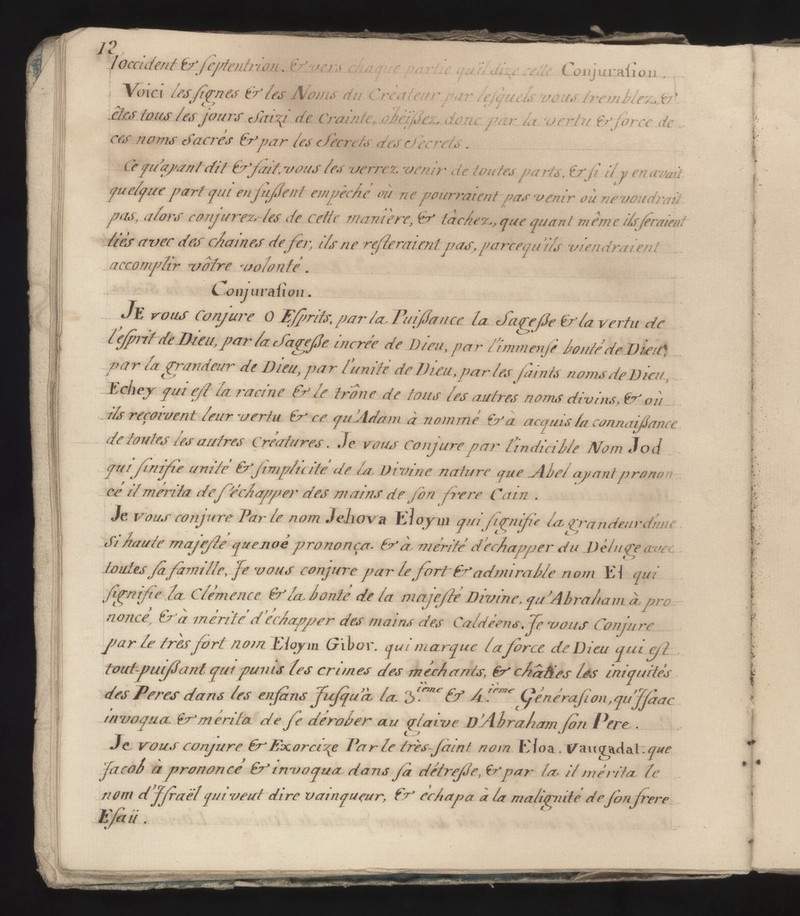 12
l'occident & septentrion. & vers chaque partie qu'il dize cette Conjuration.
Voici les signes & les Noms du Créateur par lesquels vous tremblez, &
êtes tous les jours Saizi de Crainte, obéissez donc par la vertu & force de
ces noms Sacrés & par les Secrets des Secrets.
Ce qu'ayant dit & fait, vous les verrez venir de toutes parts, & si il y en avait
quelque part qui en fussent empêché ou ne pourraient pas venir ou ne voudrait
pas, alors conjurez-les de cette manière, & tâchez, que quant même ils seraient
liés avec des chaines de fer, ils ne resteraient pas, parcequ'ils viendraient
accomplir vôtre volonté.
Conjuration.
JE vous Conjure O Esprits, par la Puissance la Sagesse & la vertu de
l'esprit de Dieu, par la Sagesse incrée de Dieu, par l'immense bonté de Dieu,
par la grandeur de Dieu, par l'unité de Dieu, par les saints noms de Dieu,
Echey qui est la racine & le trône de tous les autres noms divins, & où
ils reçoivent leur vertu & ce qu'Adam a nommé & a acquis la connaissance
de toutes les autres Créatures. Je vous Conjure par l'indicible Nom Jod
qui sinifie unité & simplicité de la Divine nature que Abel ayant pronon
cé il mérita de s'échapper des mains de son frere Cain.
Je vous conjure Par le nom Jehova Eloym qui signifie la grandeur d'une
Si haute majesté que noé prononça. & à mérité d'échapper du Déluge avec
toutes sa famille, Je vous conjure par le fort & admirable nom El qui
signifie la Clémence & la bonté de la majesté Divine, qu'Abraham à pro-
noncé, & a mérité d'échapper des mains des Caldéens. Je vous Conjure
par le très fort nom Eloym Gibor. qui marque la force de Dieu qui est
tout-puissant qui punis les crimes des méchants, & châties les iniquités
des Peres dans les enfans Jusqu'à la 3.ieme & 4.ieme Génération, qu'Isaac
invoqua & mérita de se dérober au glaive D'Abraham son Pere.
Je vous conjure & Exorcize Par le très-saint nom Eloa. Vaugadal. que
Jacob à prononcé & invoqua dans sa détresse, & par la il mérita le
nom d'Israël qui veut dire vainqueur, & échapa à la malignité de son frere
Esaü.